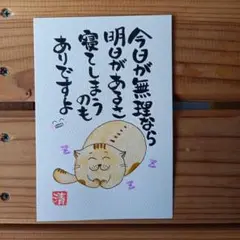 今日が無理なら
明日があるさ
寝てしまう
のも
ありですよ
清